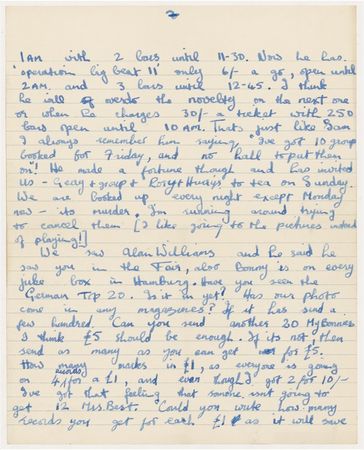 2
1AM with 2 bars until 11-30. Now he has
"operation big beat II" only 6/- a go, open until
2AM. and 3 bars until 12-45. I think
he will overdo the novelty on the next one
or when he charges 30/- a ticket with 250
bars open until 10 AM. That's just like Sam
I always remember him saying "I've got 10 groups
booked for Friday, and no hall to put them
on! He made a fortune though and has invited
us - Gerry & group & Rory & Hurrys to tea on Sunday.
We are booked up every night except Monday
now - its murder. I'm running around trying
to cancel them [I like going to the pictures instead
of playing!]
We saw Alan Williams and he said he
saw you in the Fair, also Bonny is on every
juke box in Hamburg. Have you seen the
German Top 20. Is it in yet! Has our photo
come in any magasines? If it has send a
few hundred. Can you send another 20 My Bonnies
I think £5 should be enough. If its not, then
send as many as you can get for £5.
How many marks in £1, as everyone is going
records,
on 4/- for a £1, and even though I got 2 for 10/-
I've got that feeling that someone isn't going to
get 12 Mrs. Best. Could you write how many
records you get for each £1 as it will save